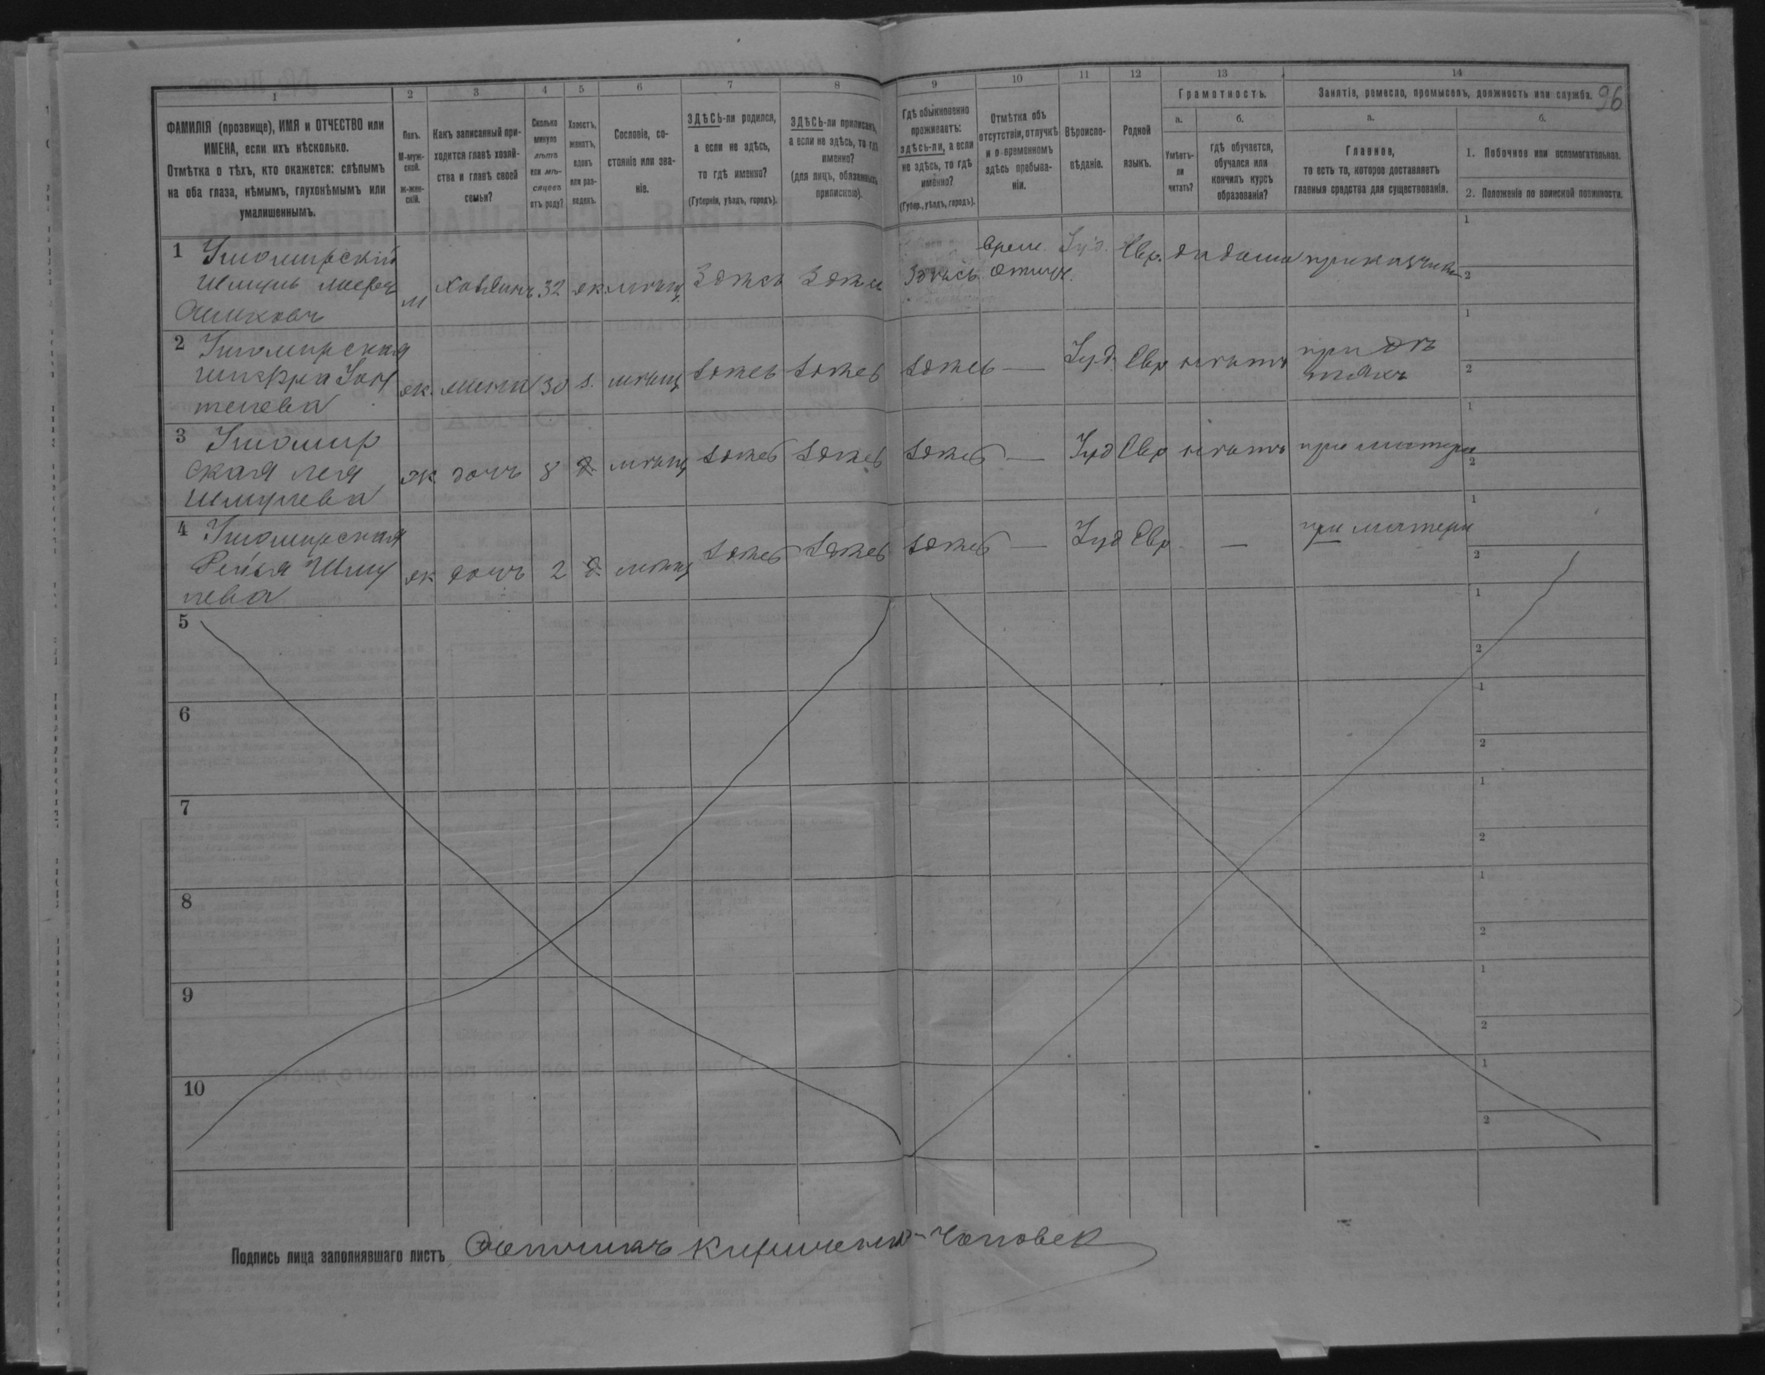 96
1
2
3
4
5
6
7
8
9
10
11
12
13
14
ФАМИЛІЯ (прозвище), ИМЯ и ОТЧЕСТВО или
ИМЕНА, если ихъ нѣсколько.
Отмѣтка о тѣхъ, кто окажется: слѣпымъ
на оба глаза, нѣмымъ, глухонѣмымъ или
умалишеннымъ.
Полъ.
М-муж-
ской.
ж-жен-
скій.
Какъ записанный при-
ходится главѣ хозяй-
ства и главѣ своей
семьи?
Сколько
минуло
лѣтъ
или мѣ-
сяцевъ
отъ роду?
Холостъ,
женатъ,
вдовъ
или раз-
веденъ.
Сословіе, со-
стояніе или зва-
ніе.
ЗДѢСЬ-ли родился,
а если не здѣсь,
то гдѣ именно?
(Губернія, уѣздъ, городъ).
ЗДѢСЬ-ли приписанъ,
а если не здѣсь, то гдѣ
именно?
(для лицъ, обязанныхъ
припискою).
Гдѣ обыкновенно
проживаетъ:
здѣсь-ли, а если
не здѣсь, то гдѣ
именно?
(Губер., уѣздъ, городъ).
Отмѣтка объ
отсутствіи, отлучкѣ
и о временномъ
здѣсь пребыва-
ніи.
Вѣроиспо-
вѣданіе.
Родной
языкъ.
Грамотность.
а.
Умѣетъ-
ли
читать?
б.
гдѣ обучается,
обучался или
кончилъ курсъ
образованія?
Занятіе, ремесло, промыселъ, должность или служба.
а.
Главное,
то есть то, которое доставляетъ
главныя средства для существованія.
б.
1. Побочное или вспомогательное.
2. Положеніе по воинской повинности.
1 Житомирскій
Шмуль
м хозяинъ 32 ж мѣщ. Здѣсь Здѣсь Здѣсь врем. отлуч. Іуд. Евр. да дома приказчикъ
2 Житомирская
ж. жена 30 з. мѣщ здѣсь здѣсь здѣсь — Іуд. Евр нѣтъ при
3 Житомир
ская Лея
Шмулева
ж дочь 8 д. мѣщ здѣсь здѣсь здѣсь — Іуд Евр нѣтъ при матери
4 Житомирская
Рейзя Шму
лева
ж дочь 2 д. мѣщ здѣсь здѣсь здѣсь — Іуд Евр — при матери
5
6
7
8
9
10
Подпись лица заполнявшаго листъ